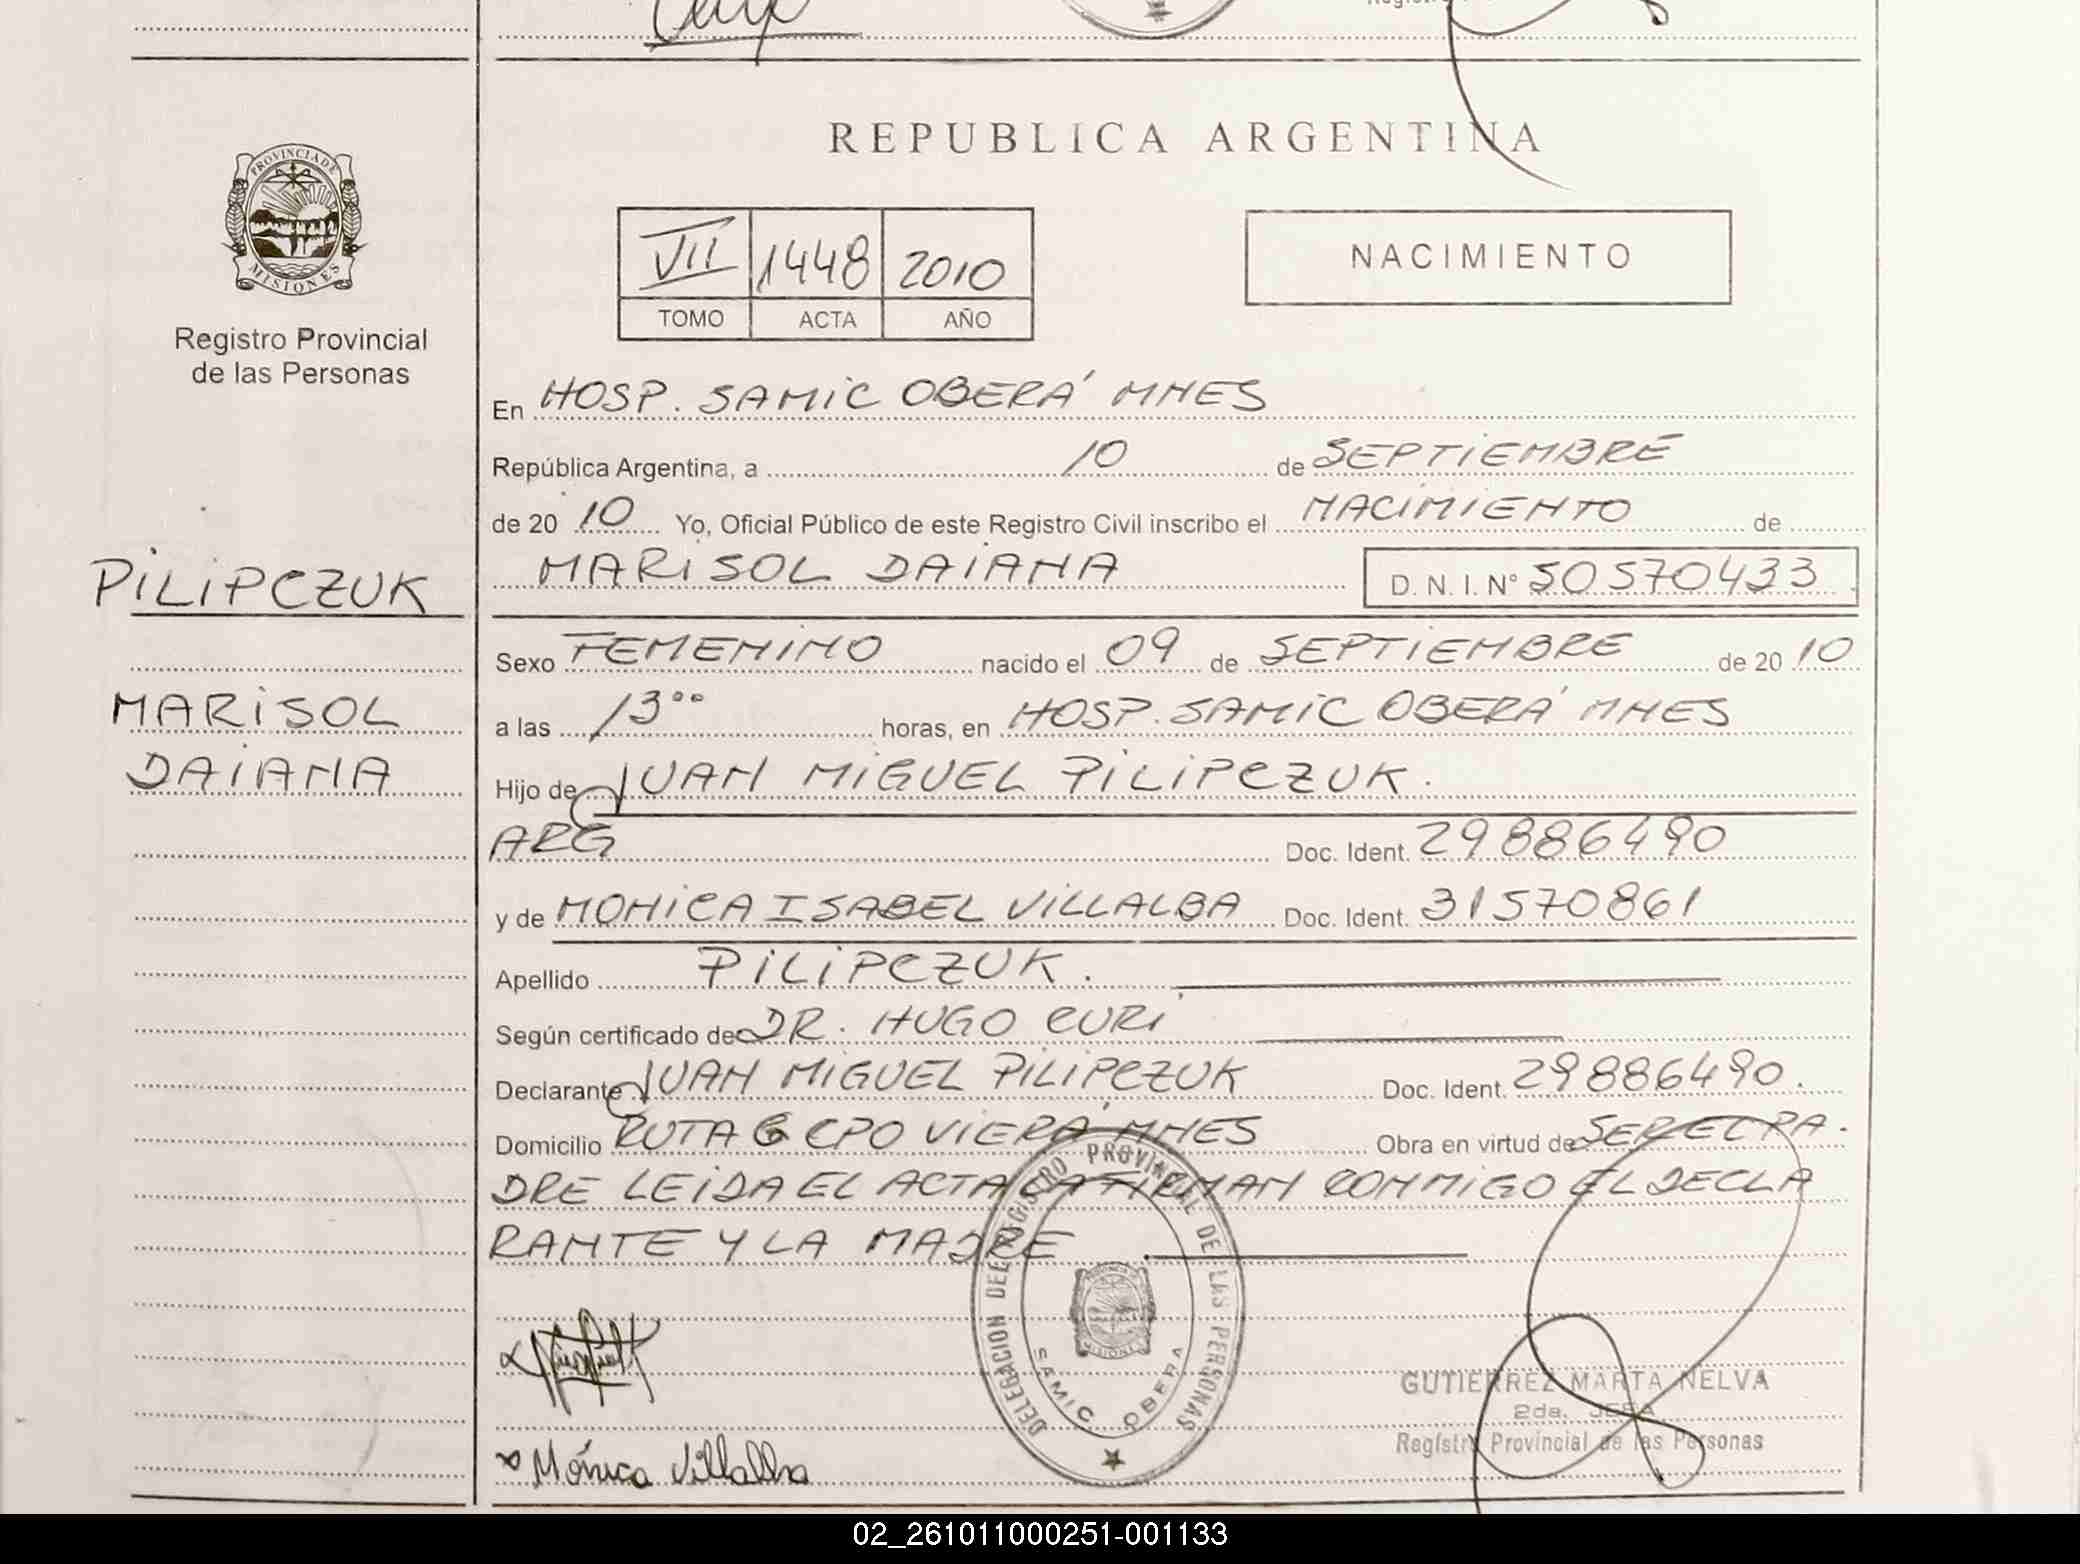 REPUBLICA ARGENTINA
PROVINCIA DE
MISIONES
Registro Provincial
de las Personas
VII 1448 2010
TOMO ACTA AÑO
NACIMIENTO
En HOSP. SAMIC OBERÁ MNES
República Argentina, a 10 de SEPTIEMBRE
de 20 10 Yo, Oficial Público de este Registro Civil inscribo el NACIMIENTO de
MARISOL DAIANA D. N. I. N° 50570433
PILIPCZUK
MARISOL
DAIANA
Sexo FEMENINO nacido el 09 de SEPTIEMBRE de 20 10
a las 13°° horas, en HOSP. SAMIC OBERÁ MNES
Hijo de JUAN MIGUEL PILIPCZUK.
ARG Doc. Ident. 29886490
y de MONICA ISABEL VILLALBA Doc. Ident. 31570861
Apellido PILIPCZUK.
Según certificado de DR. HUGO CURI
Declarante JUAN MIGUEL PILIPCZUK Doc. Ident. 29886490.
Domicilio RUTA 6 CPO VIERA MNES Obra en virtud de SER EL PA.
DRE LEIDA EL ACTA LA FIRMAN CONMIGO EL DECLA
RANTE Y LA MADRE
DELEGACION DEL REGISTRO PROVINCIAL DE LAS PERSONAS
SAMIC OBERA
GUTIERREZ MARTA NELVA
2da. JEFA
Registro Provincial de las Personas
Mónica Villalba
02_261011000251-001133